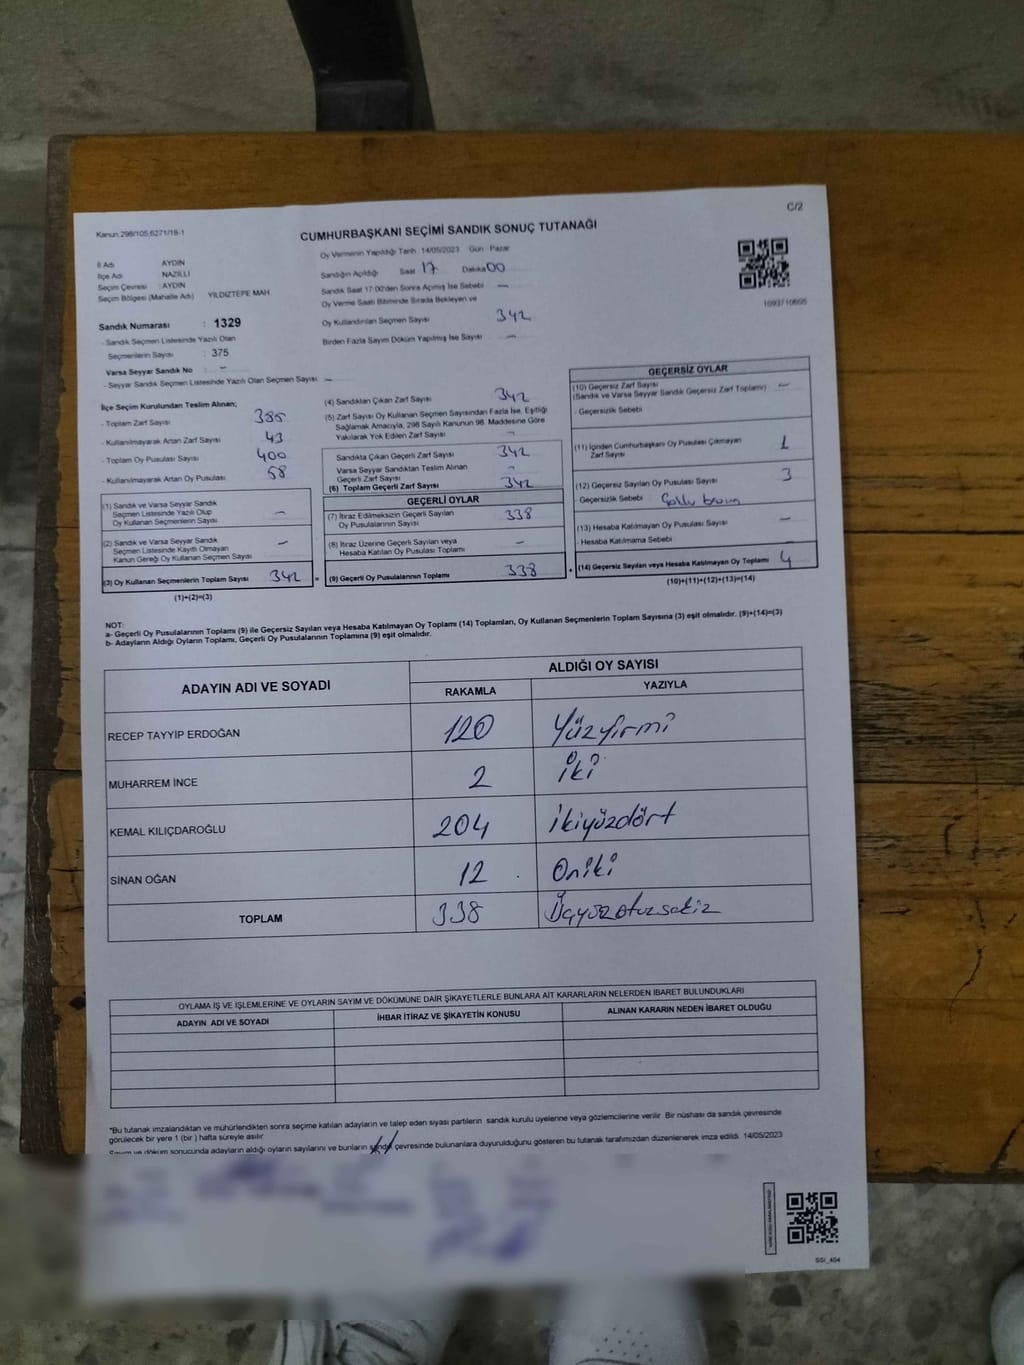 C/2
Kanun:298/105,6271/18-1
CUMHURBAŞKANI SEÇİMİ SANDIK SONUÇ TUTANAĞI
İl Adı : AYDIN
İlçe Adı : NAZİLLİ
Seçim Çevresi : AYDIN
Seçim Bölgesi (Mahalle Adı) : YILDIZTEPE MAH
Oy Vermenin Yapıldığı Tarih 14/05/2023 Gün : Pazar
Sandığın Açıldığı Saat 17 Dakika 00
Sandık Saat 17:00'den Sonra Açılmış İse Sebebi —
Oy Verme Saati Bitiminde Sırada Bekleyen ve
Oy Kullandırılan Seçmen Sayısı 342
Birden Fazla Sayım Döküm Yapılmış İse Sayısı —
Sandık Numarası : 1329
- Sandık Seçmen Listesinde Yazılı Olan
Seçmenlerin Sayısı : 375
Varsa Seyyar Sandık No : —
- Seyyar Sandık Seçmen Listesinde Yazılı Olan Seçmen Sayısı: —
İlçe Seçim Kurulundan Teslim Alınan;
- Toplam Zarf Sayısı 385
- Kullanılmayarak Artan Zarf Sayısı 43
- Toplam Oy Pusulası Sayısı 400
- Kullanılmayarak Artan Oy Pusulası 58
(1) Sandık ve Varsa Seyyar Sandık
Seçmen Listesinde Yazılı Olup
Oy Kullanan Seçmenlerin Sayısı —
(2) Sandık ve Varsa Seyyar Sandık
Seçmen Listesinde Kayıtlı Olmayan
Kanun Gereği Oy Kullanan Seçmen Sayısı —
(3) Oy Kullanan Seçmenlerin Toplam Sayısı 342
(1)+(2)=(3)
(4) Sandıktan Çıkan Zarf Sayısı 342
(5) Zarf Sayısı Oy Kullanan Seçmen Sayısından Fazla İse, Eşitliği
Sağlamak Amacıyla, 298 Sayılı Kanunun 98. Maddesine Göre
Yakılarak Yok Edilen Zarf Sayısı —
Sandıkta Çıkan Geçerli Zarf Sayısı 342
Varsa Seyyar Sandıktan Teslim Alınan
Geçerli Zarf Sayısı —
(6) Toplam Geçerli Zarf Sayısı 342
GEÇERLİ OYLAR
(7) İtiraz Edilmeksizin Geçerli Sayılan
Oy Pusulalarının Sayısı 338
(8) İtiraz Üzerine Geçerli Sayılan veya
Hesaba Katılan Oy Pusulası Toplamı —
= (9) Geçerli Oy Pusulalarının Toplamı 338
GEÇERSİZ OYLAR
(10) Geçersiz Zarf Sayısı —
(Sandık ve Varsa Seyyar Sandık Geçersiz Zarf Toplamı)
- Geçersizlik Sebebi
(11) İçinden Cumhurbaşkanı Oy Pusulası Çıkmayan
Zarf Sayısı 1
(12) Geçersiz Sayılan Oy Pusulası Sayısı 3
- Geçersizlik Sebebi
(13) Hesaba Katılmayan Oy Pusulası Sayısı —
- Hesaba Katılmama Sebebi —
+ (14) Geçersiz Sayılan veya Hesaba Katılmayan Oy Toplamı 4
(10)+(11)+(12)+(13)=(14)
NOT:
a- Geçerli Oy Pusulalarının Toplamı (9) ile Geçersiz Sayılan veya Hesaba Katılmayan Oy Toplamı (14) Toplamları, Oy Kullanan Seçmenlerin Toplam Sayısına (3) eşit olmalıdır. (9)+(14)=(3)
b- Adayların Aldığı Oyların Toplamı, Geçerli Oy Pusulalarının Toplamına (9) eşit olmalıdır.
ADAYIN ADI VE SOYADI
ALDIĞI OY SAYISI
RAKAMLA YAZIYLA
RECEP TAYYİP ERDOĞAN 120 Yüzyirmi
MUHARREM İNCE 2 iki
KEMAL KILIÇDAROĞLU 204 ikiyüzdört
SİNAN OĞAN 12 Oniki
TOPLAM 338 Üçyüzotuzsekiz
OYLAMA İŞ VE İŞLEMLERİNE VE OYLARIN SAYIM VE DÖKÜMÜNE DAİR ŞİKAYETLERLE BUNLARA AİT KARARLARIN NELERDEN İBARET BULUNDUKLARI
ADAYIN ADI VE SOYADI İHBAR İTİRAZ VE ŞİKAYETİN KONUSU ALINAN KARARIN NEDEN İBARET OLDUĞU
*Bu tutanak imzalandıktan ve mühürlendikten sonra seçime katılan adayların ve talep eden siyasi partilerin sandık kurulu üyelerine veya gözlemcilerine verilir. Bir nüshası da sandık çevresinde
görülecek bir yere 1 (bir) hafta süreyle asılır.
Sayım ve döküm sonucunda adayların aldığı oyların sayılarını ve bunların sandık çevresinde bulunanlara duyurulduğunu gösteren bu tutanak tarafımızdan düzenlenerek imza edildi. 14/05/2023